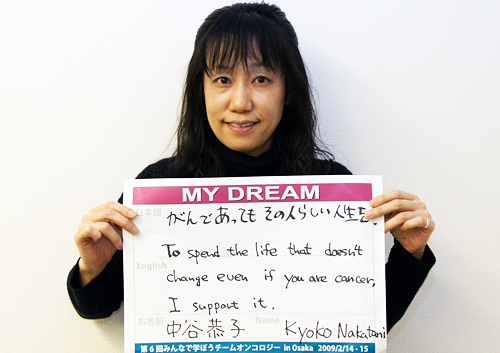 MY DREAM
日本語
がんであってもその人らしい人生を。
To spend the life that doesn't
English
change even if you are cancer,
I support it.
お名前
中谷恭子
Name
Kyoko Nakatani
第6回みんなで学ぼうチームオンコロジー in Osaka 2009/2/14-15